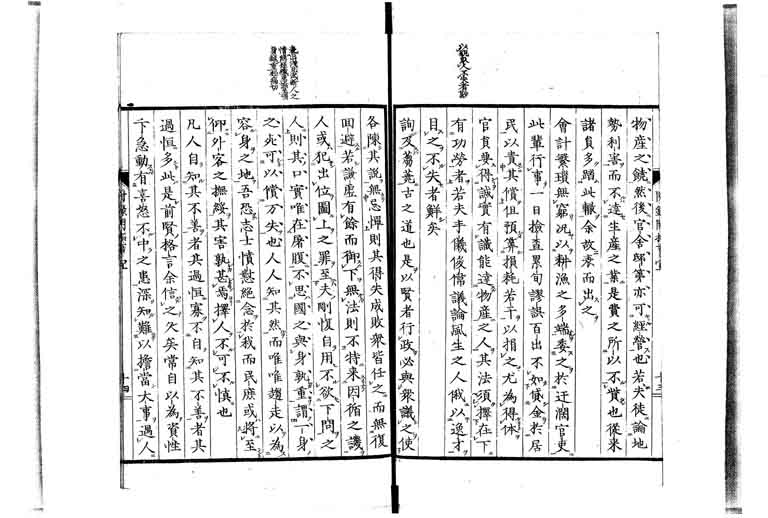 物產之饒然後官舍邸第亦可經營也若夫徒論地
勢利害而不達生產之業是費之所以不貲也從來
諸負多蹈此轍余故表而出之
會計繁瑣無窮況以耕漁之多端委之於迂濶官吏
此輩行事一日檢查累旬謬誤百出不如貸金於居
民以責其償但預算損耗若干以捐之尤為得体
官負要得誠實有識能達物產之人其法須擇在下
有功勞者若夫手儀俊偉議論風生之人俄以逸才
目之不失者鮮矣
詢及蒭蕘古之道也是以賢者行政必與衆議之使
各陳其說無忌憚則其得失成敗衆皆任之而無復
回避若謙虛有餘而御下無法則不特来因循之譏
人或犯出位圖上之罪至夫剛愎自用不欲下問之
人則其口實唯在屠腹不思國之與身孰重謂一身
之死可以償万失也人人知其然而唯唯趨走以為
容身之地吾恐志士憤懟絕念於我而民庶或將至
仰外客之撫綏其害孰甚焉擇人不可不慎也
凡人自知其不善者其過恒寡不自知其不善者其
過恒多此是前賢格言余信之久矣常自以為資性
卞急動有喜怒不中之患深知難以擔當大事過人